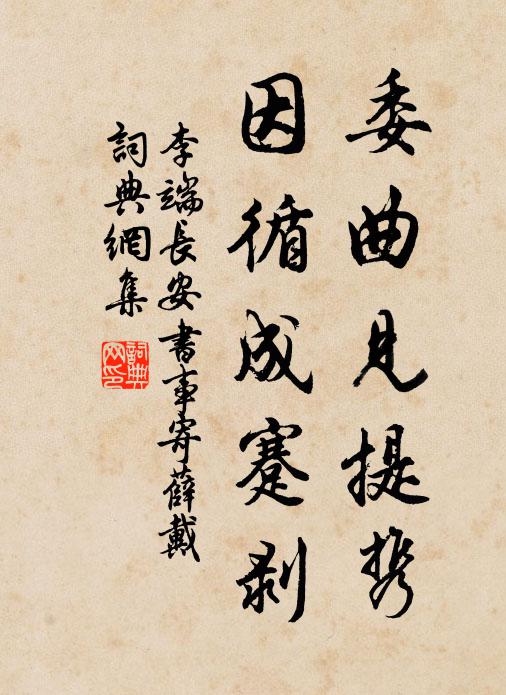 委曲見提携
因循成蹇剥
李端長安書事寄薛戴
詞典網集
詞典
网印